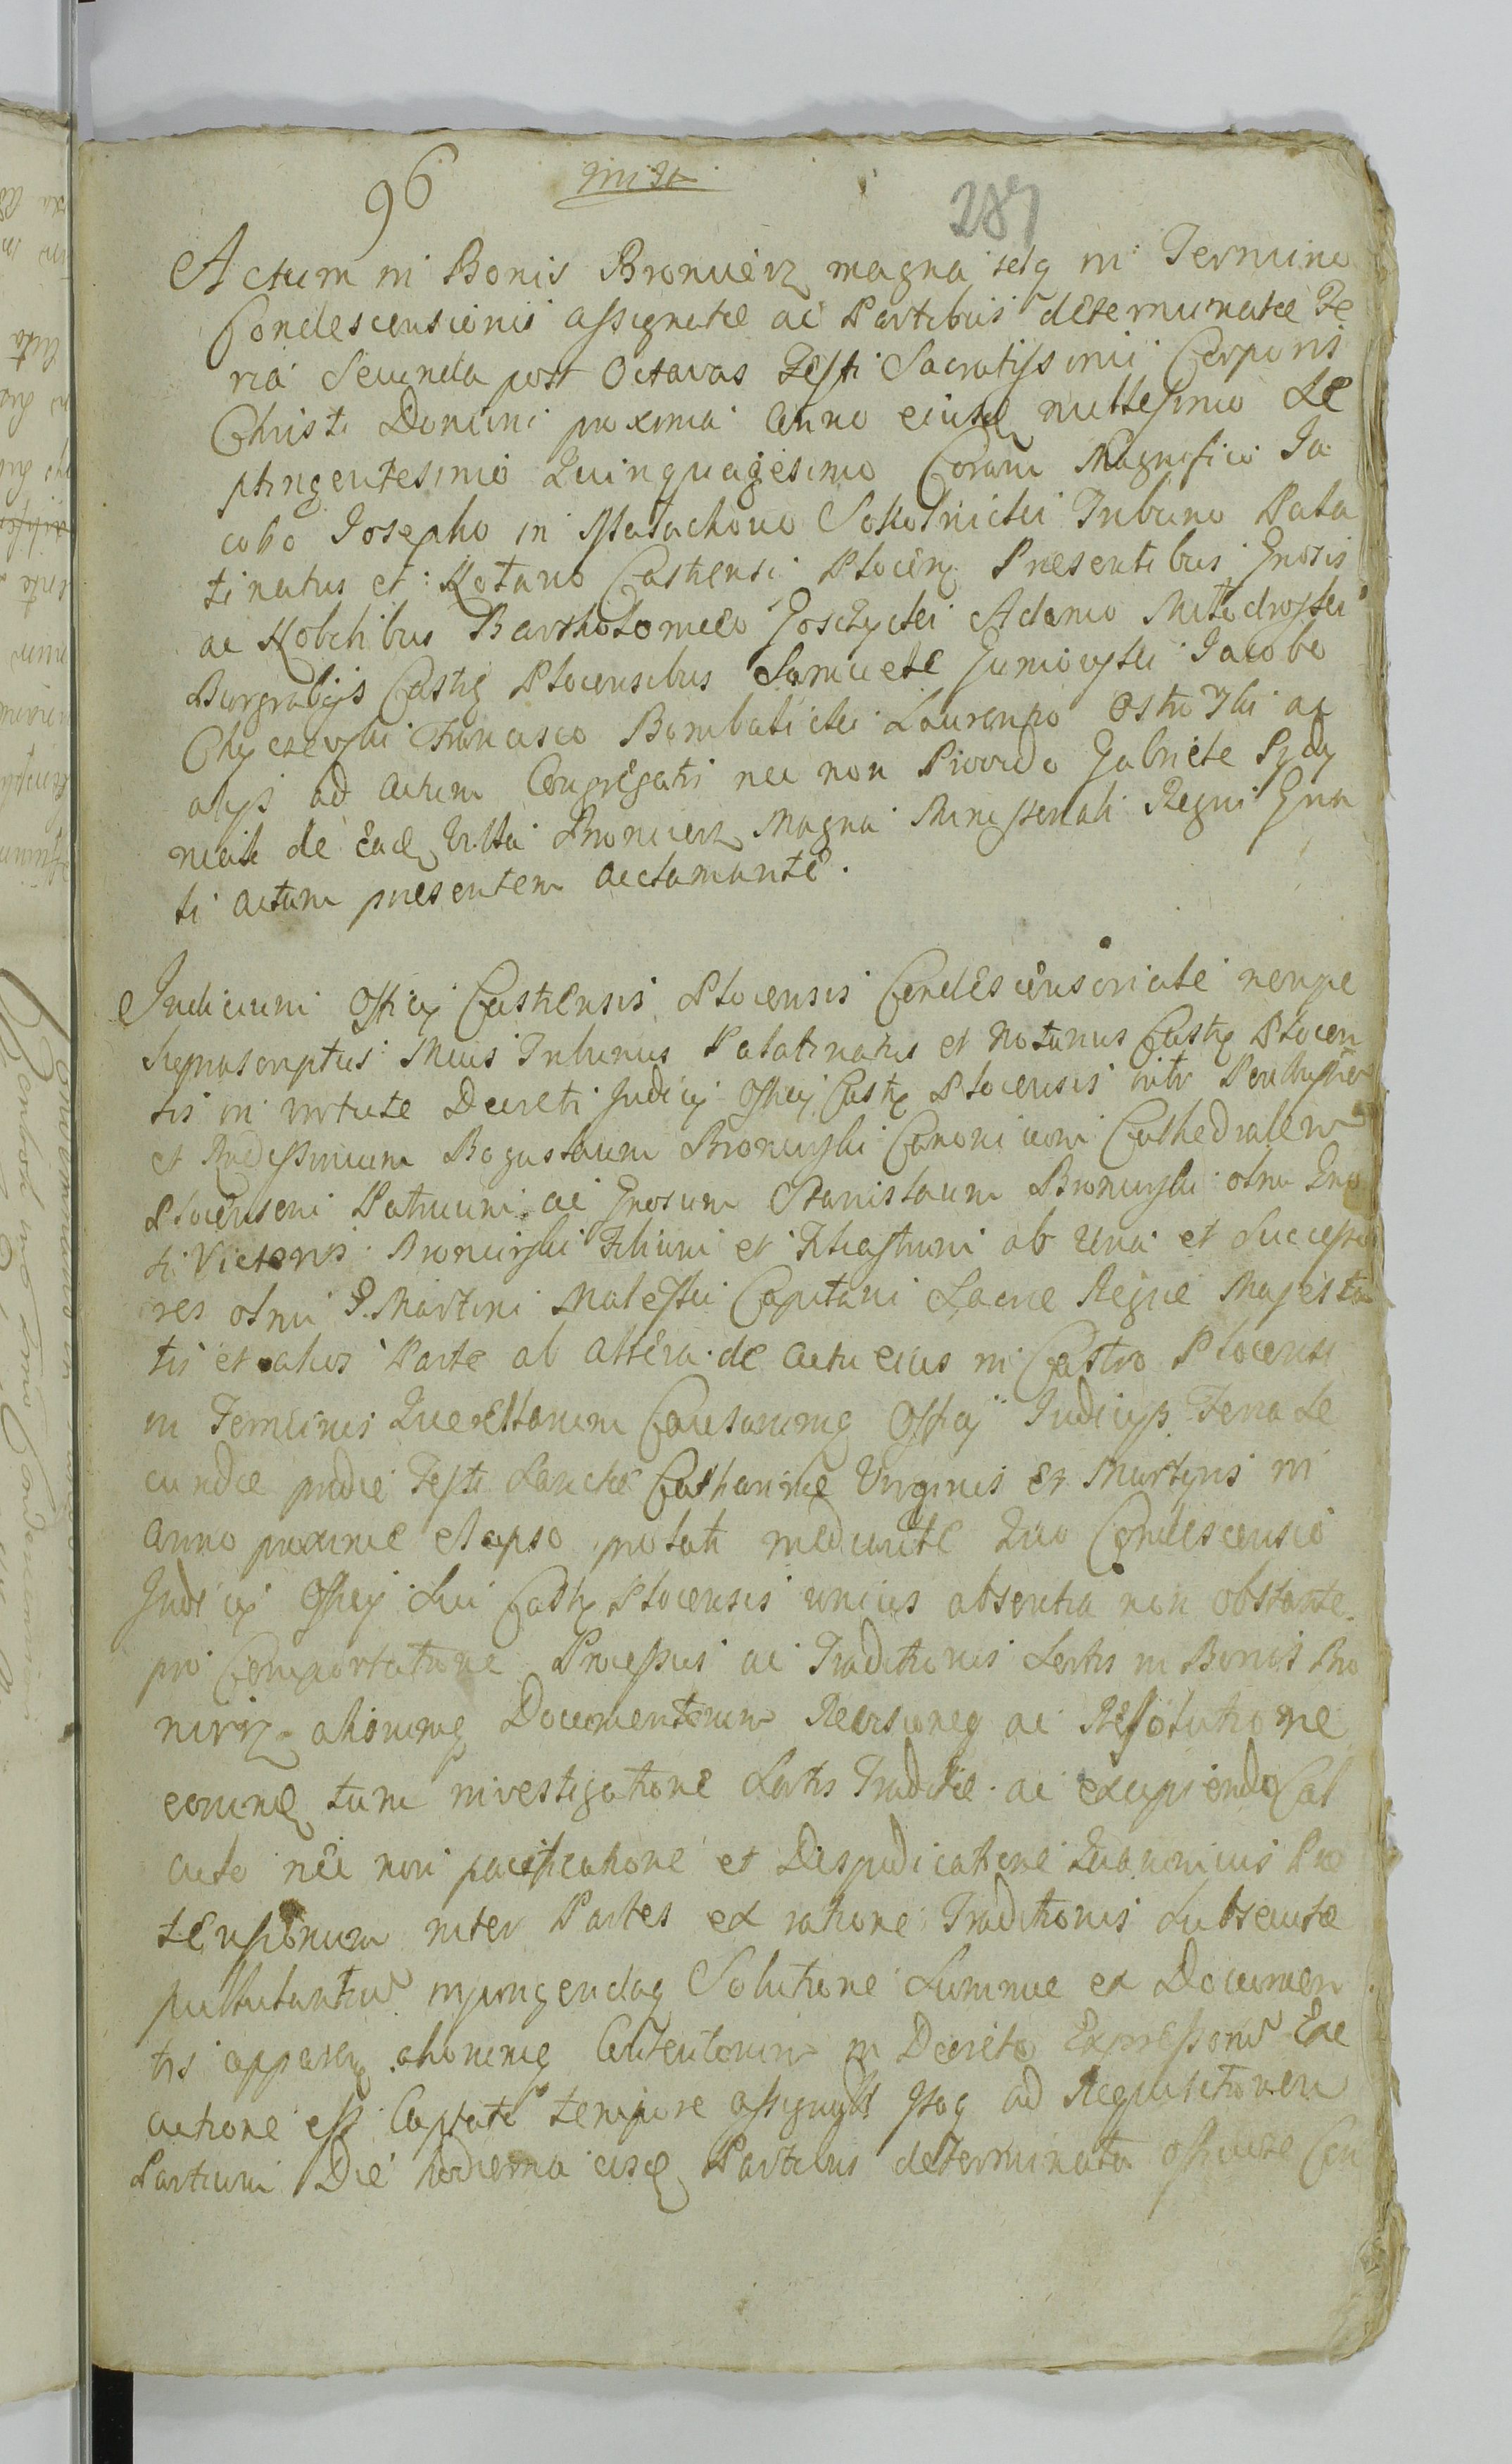 96
287
Actum in Bonis Bronierz magna seq in Termino
Condescensionis assignatæ ac Partibus determinatæ Fe
ria Secunda post Octavas Festi Sacratissimi Corporis
Christi Domini proxima Anno eiusd millesimo Se
ptingentesimo Quinquagesimo Coram Magnifico Ja
cobo Josepho in Małachowo Sokolnicki Tribuno Pala
tinatus et Notario Castrensi Plocen Præsentibus Gnosis
ac Nobilibus Bartholomæo Adamo
Burgrabijs Castr Plocensibus Samuele Jacobo
Francisco Laurentio ac
alijs ad actum Congregatis nec non Provido Gabriele
de Ead Villa Bronierz Magna Ministeriali Regni Gnra
li actum præsentem acclamante.
Judicium Officij Castrensis Plocensis Condescensoriale nempe
suprascriptus Mcus Tribunus Palatinatus et Notarius Castr Plocen
sis in virtute Decreti Judicij Officij Castr Plocensis intr
et Rndissimum Bogusłaum Bronirski Canonicum Cathedralem
Plocensem Patruum ac Gnosum Stanislaum Bronirski olim Gno
si Bronirski Filium et ab una et Successo
res olim G. Martini Maleski Capitani Sacræ Regiæ Majesta
tis et alios Parte ab altera de actu eius in Castro Plocensi
in Terminis Querellarum Causarumq Officij Judicijs Feria Se
cunda pridie Festi Sanctæ Catharinæ Virginis et Martyris in
anno proxime elapso prolati mediante quo Condescensio
Judicij Officij Sui Castr Plocensis unius absentia non obstante
pro Comportatione Processus ac Traditionis Sortis in Bonis Bro
nirz aliorumq Documentorum Revisioneq ac Resolutione
eorumd tum investigatione Sortis Traditæ ac excipiendo Cal
culo nec non pacificatione et Disjudicatione quarumvis Præ
tensionum inter Partes ex ratione Traditionis Subsecutæ
pullulantium injungendaq Solutione Summæ ex Documen
tis apparen aliorumq Contentorum in Decreto Expressorum Exe
cutione est tempore ad Requisitionem
Partium Die hodierna eisd Partibus determinata